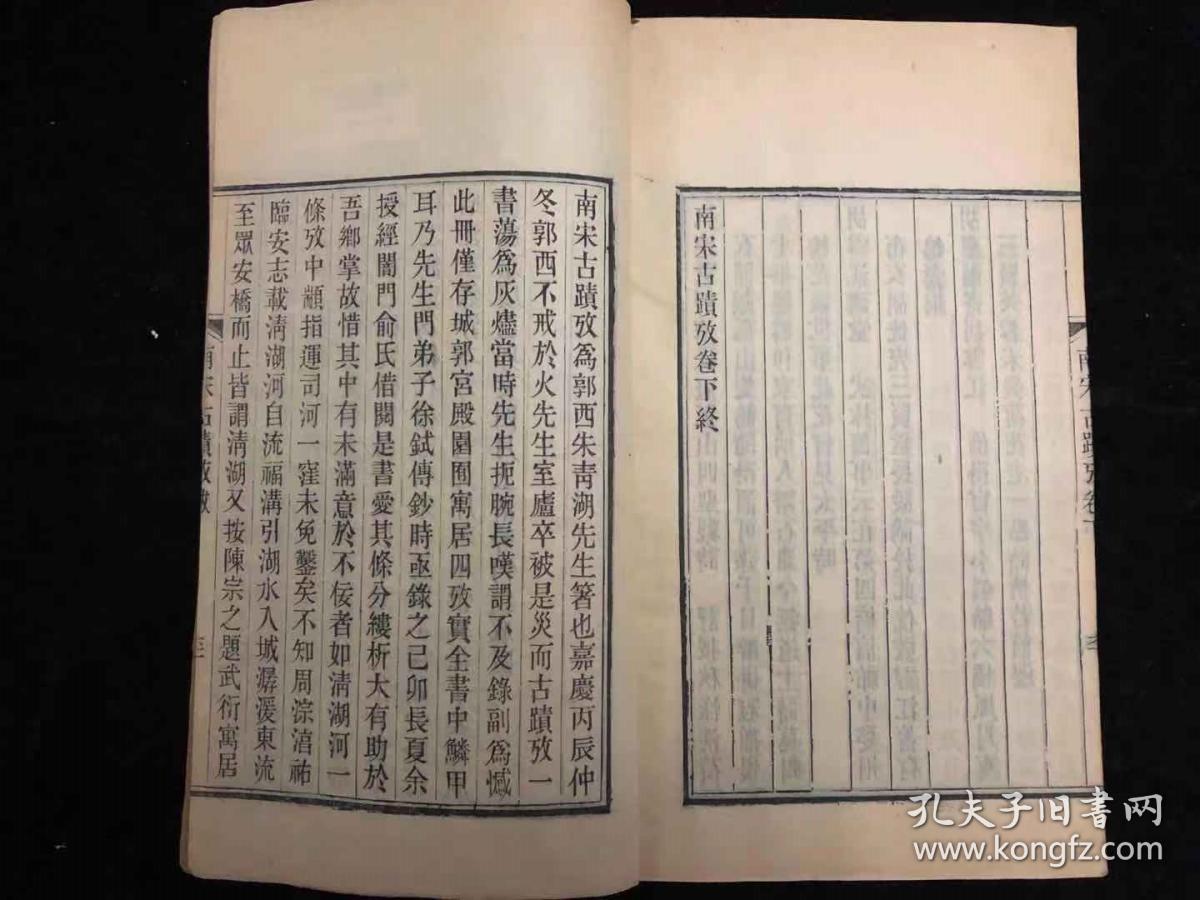 南宋古蹟攷卷下終
南宋古蹟攷卷下
南宋古蹟攷爲郭西朱靑湖先生箸也嘉慶丙辰仲
冬郭西不戒於火先生室廬卒被是災而古蹟攷一
書蕩爲灰燼當時先生扼腕長嘆謂不及錄副爲憾
此冊僅存城郭宮殿園囿寓居四攷實全書中鱗甲
耳乃先生門弟子徐鉽傳鈔時亟錄之己卯長夏余
授經閶門俞氏借閱是書愛其條分縷析大有助於
吾鄉掌故惜其中有未滿意於不佞者如清湖河一
條攷中顓指運司河一窪未免鑿矣不知周淙淯祐
臨安志載淸湖河自流福溝引湖水入城潺湲東流
至眾安橋而止皆謂淸湖又按陳宗之題武衍寓居
南宋古蹟攷
孔夫子旧书网
www.kongfz.com